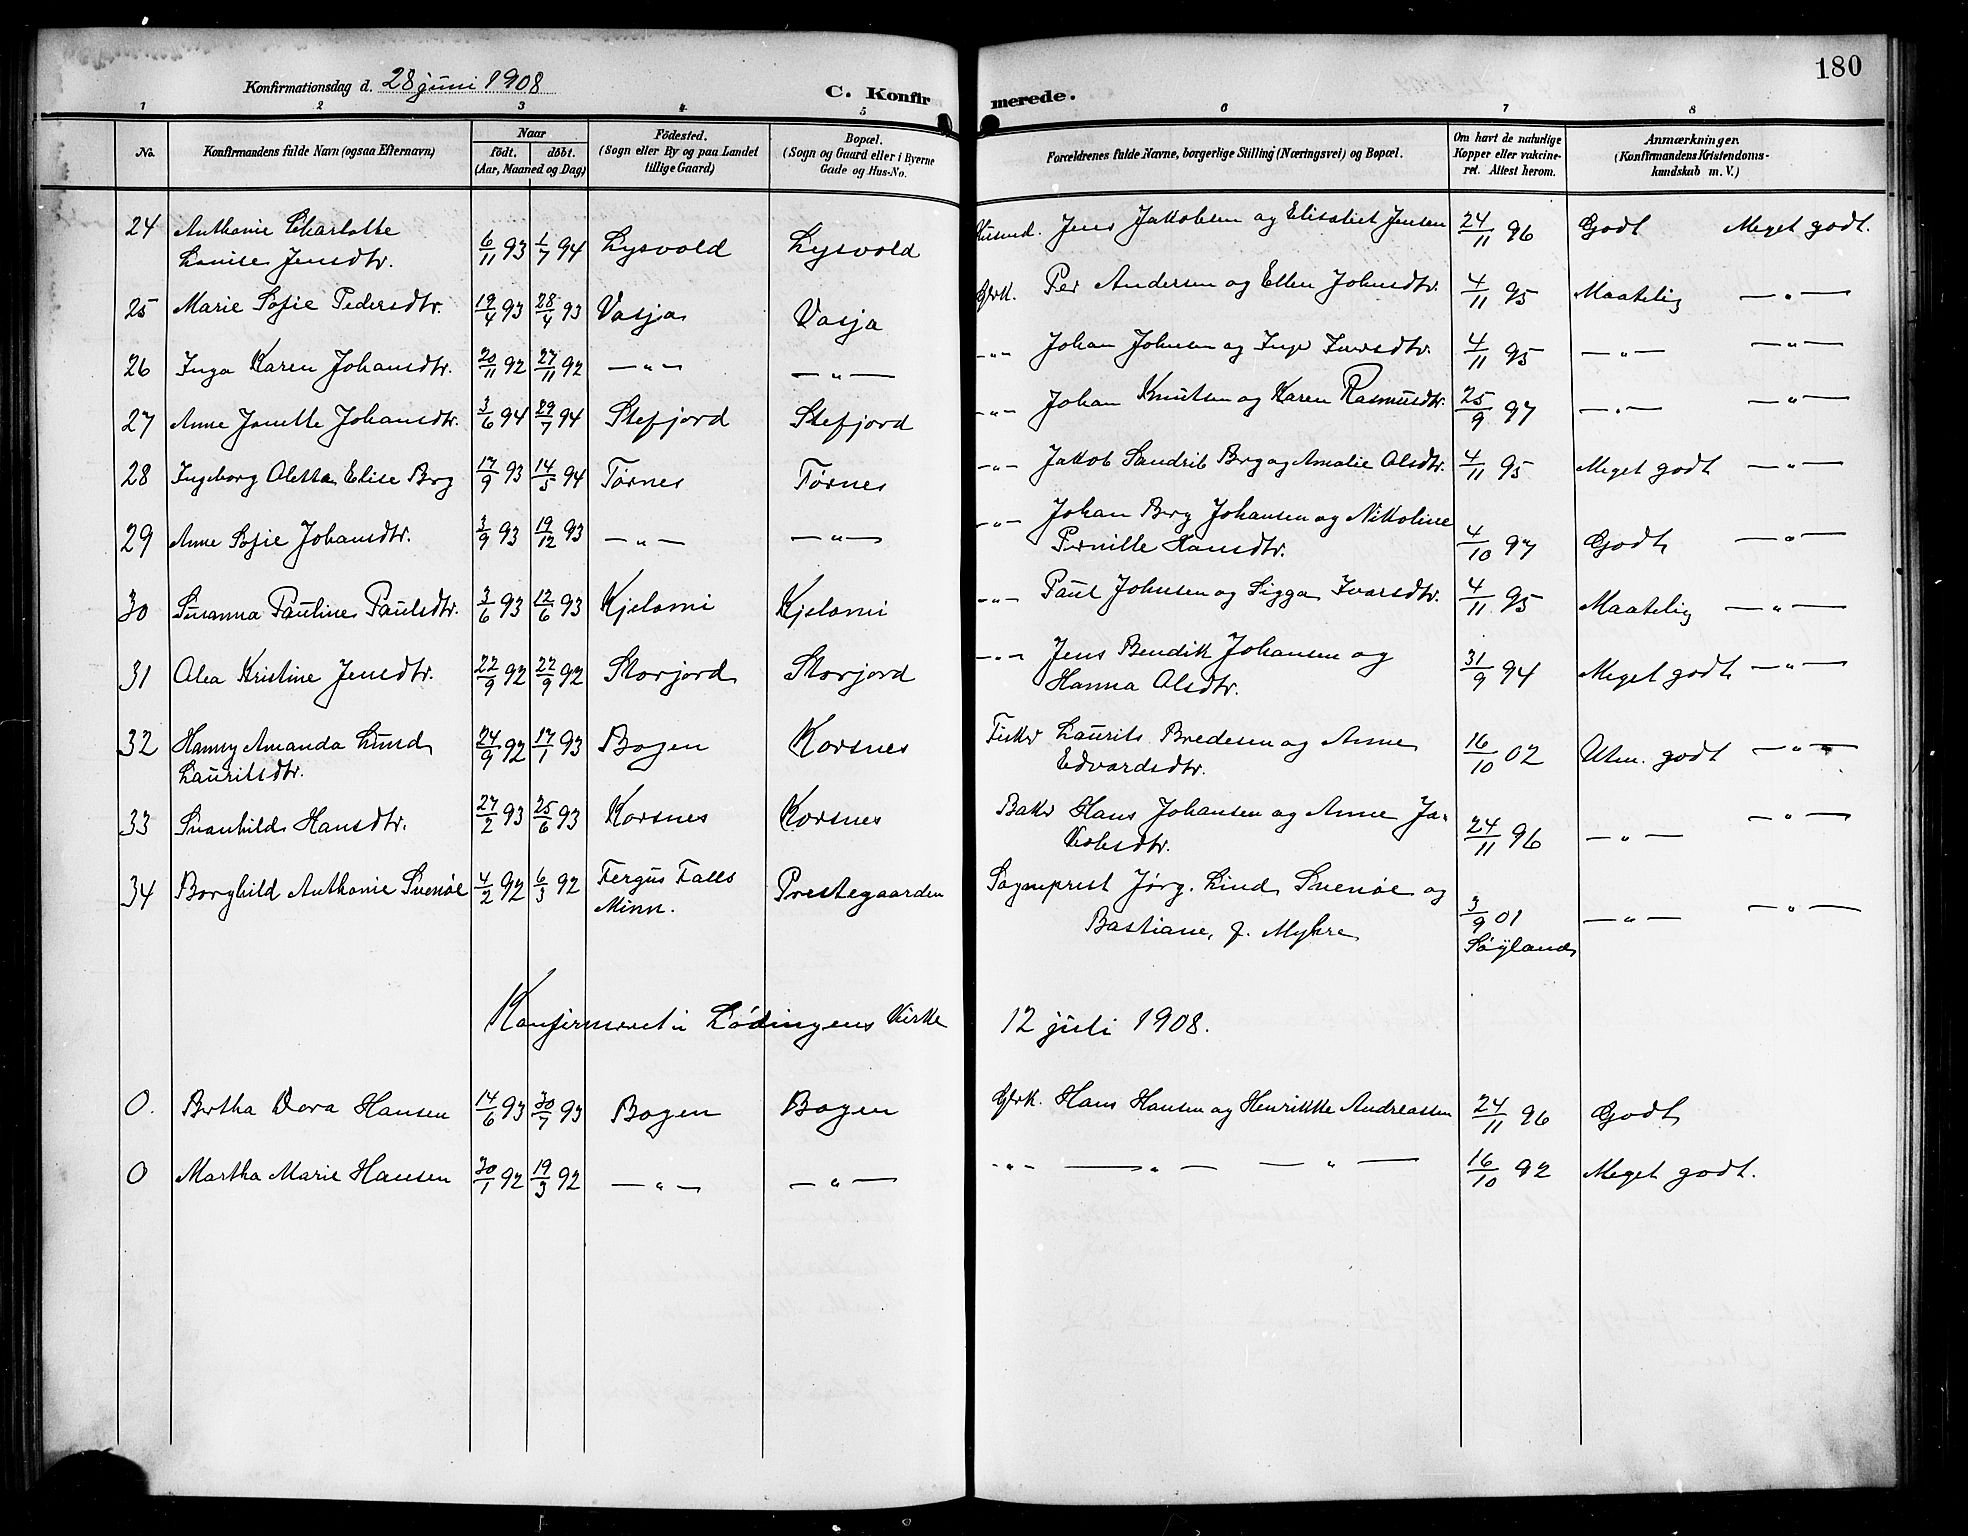 180
Konfirmationsdag d. 28 juni 1908
C. Konfirmerede.
1 2 3 4 5 6 7 8
No. Konfirmandens fulde Navn (ogsaa Efternavn) Naar født. døbt. (Aar, Maaned og Dag) Fødested. (Sogn eller By og paa Landet tillige Gaard) Bopæl. (Sogn og Gaard eller i Byerne Gade og Hus-No. Forældrenes fulde Navne, borgerlige Stilling (Næringsvei) og Bopæl. Om havt de naturlige Kopper eller vakcineret. Attest herom. Anmærkninger. (Konfirmandens Kristendomskundskab m. V.)
24 Anthonie Charlotte Louise Jensdtr. 6/11 93 1/7 94 Lysvold Lysvold Husmd. Jens Jakobsen og Elisabet Jensen 24/11 96 Godt Meget godt.
25 Marie Sofie Pedersdtr. 19/4 93 28/4 93 Vasja Vasja Gbrk. Per Andersen og Ellen Johnsdtr. 4/11 95 Maatelig — " —
26 Inga Karen Johansdtr. 20/11 92 27/11 92 — " — — " — - " - Johan Johnsen og Inger Ivarsdtr. 4/11 95 — " — — " —
27 Anne Janette Johansdtr. 3/6 94 29/7 94 Stefjord Stefjord - " - Johan Knutsen og Karen Rasmusdtr. 25/9 97 — " — — " —
28 Ingeborg Oletta Elise Berg 17/9 93 14/5 94 Tørnes Tørnes - " - Jakob Sandrib Berg og Amalie Olsdtr. 4/11 95 Meget godt — " —
29 Anne Sofie Johansdtr. 3/9 93 19/12 93 — " — — " — - " - Johan Berg Johansen og Nikoline Pernille Hansdtr. 4/10 97 Godt — " —
30 Susanna Pauline Paulsdtr. 3/6 93 12/6 93 Kjelomi Kjelomi - " - Paul Johnsen og Sigga Ivarsdtr. 4/11 95 Maatelig — " —
31 Olea Kristine Jensdtr. 22/9 92 22/9 92 Storjord Storjord - " - Jens Bendik Johansen og Hanna Olsdtr. 31/9 94 Meget godt — " —
32 Hanny Amanda Lund Lauritsdtr. 24/9 92 17/1 93 Bogen Korsnes Fisker Laurits Bredesen og Anne Edvardsdtr. 16/10 02 Utm. godt — " —
33 Svanhild Hansdtr. 27/2 93 25/6 93 Korsnes Korsnes Baker Hans Johansen og Anne Jakobsdtr. 24/11 96 — " — — " —
34 Borghild Anthonie Svenøe 4/2 92 6/3 92 Fergus Falls Minn. Prestegaarden Sogneprest Jørg. Lind Svenøe og Bastiane, f. Myhre 3/9 01 Søyland — " — — " —
Konfirmeret i Lødingens Kirke 12 juli 1908.
0. Bertha Dora Hansen 14/6 93 30/7 93 Bogen Bogen Gbrk. Hans Hansen og Henrikke Andreassen 24/11 96 Godt
0 Martha Marie Hansen 30/1 92 19/3 92 — " — — " — - " - — " — — " — 16/10 92 Meget godt.